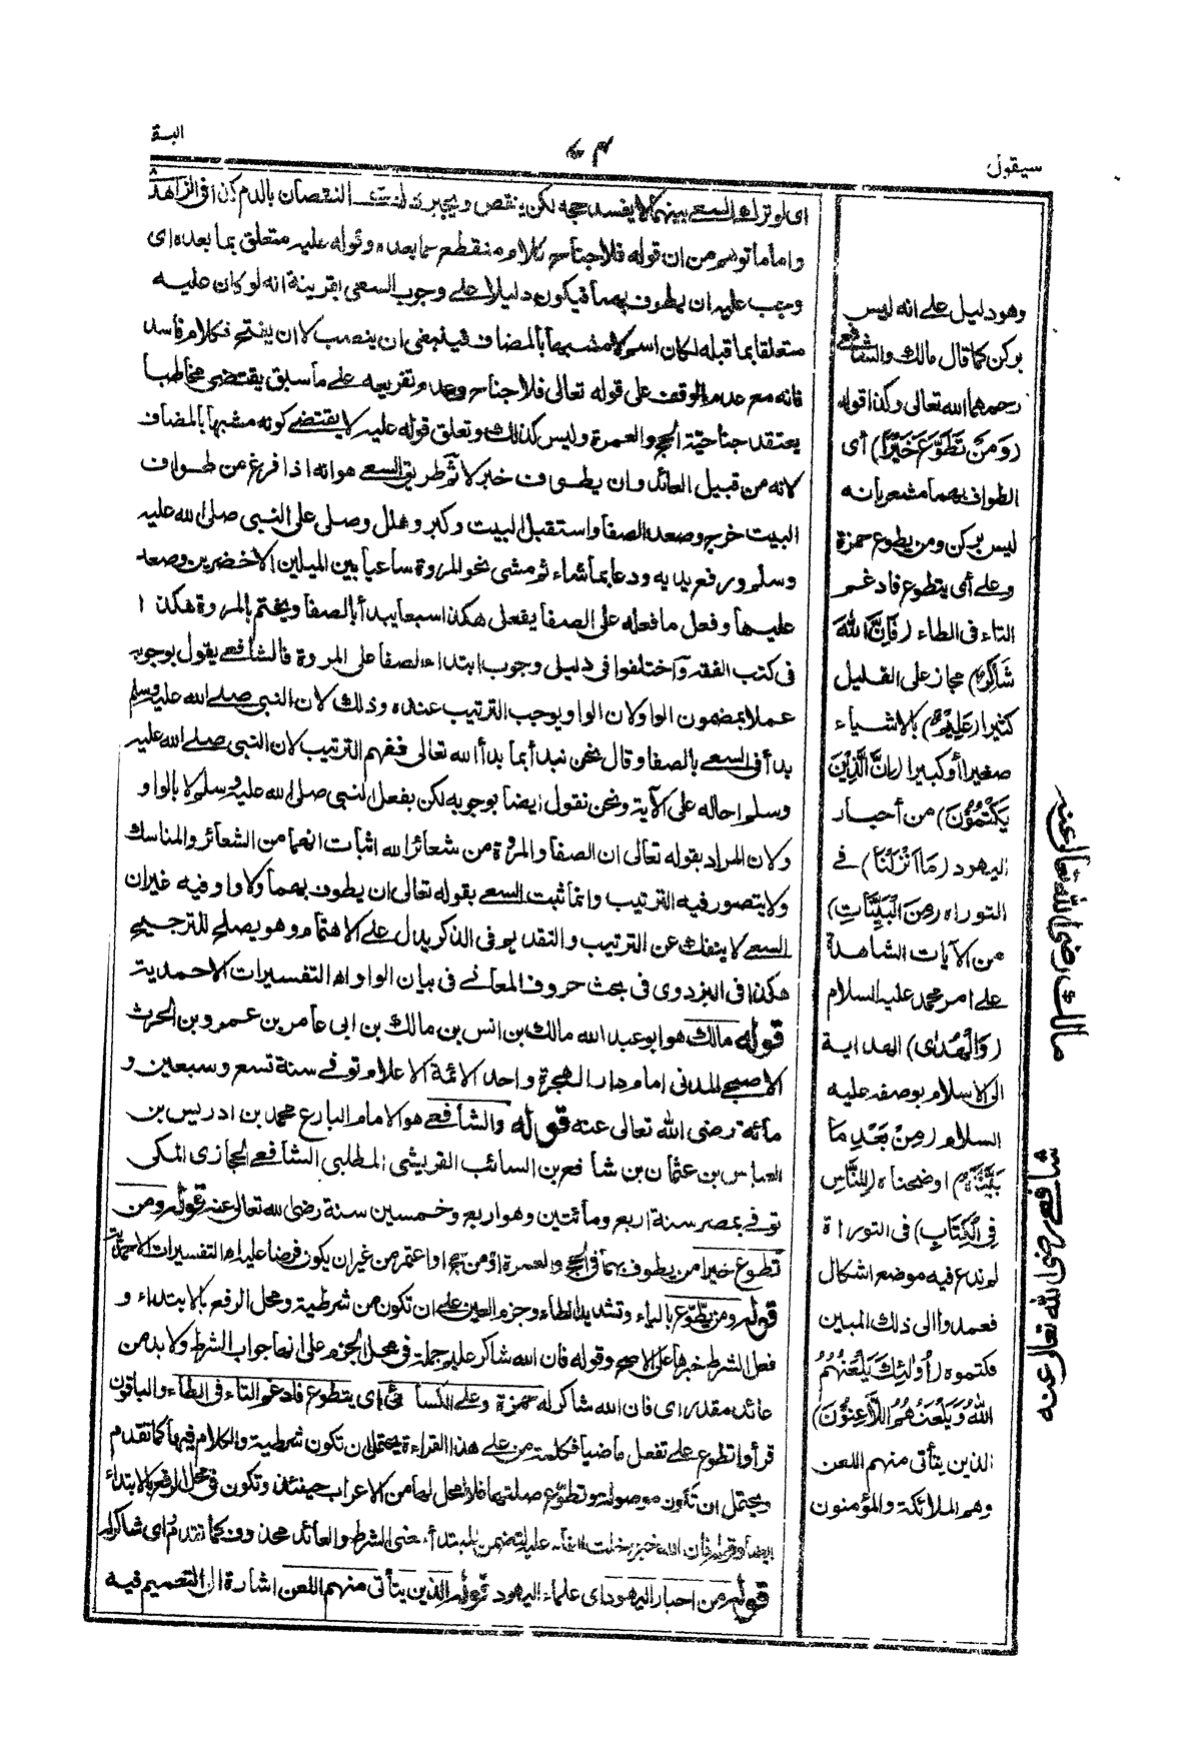 سيقول
البقرة
وهو دليل على انه ليس
بركن كما قال مالك والشافعي
رحمهما الله تعالى وكذا قوله
(وَمَنْ تَطَوَّعَ خَيْرًا) أى
الطواف بهما مشعر بانه
ليس بركن ومن يطوع حمزة
وعلى أى يتطوع فادغم
التاء فى الطاء (فَإِنَّ اللهَ
شَاكِرٌ) مجاز على القليل
كثيرا (عَلِيْمٌ) بالاشياء
صغيرا أو كبيرا (إِنَّ الَّذِيْنَ
يَكْتُمُوْنَ) من أحبار
اليهود (مَا أَنْزَلْنَا) فى
التوراة (مِنَ الْبَيِّنَاتِ)
من الآيات الشاهدة
على امر محمد عليه السلام
(وَالْهُدٰى) الهداية
الى الاسلام بوصفه عليه
السلام (مِنْ بَعْدِ مَا
بَيَّنَّاهُ) اوضحناه (لِلنَّاسِ
فِى الْكِتَابِ) فى التوراة
لم ندع فيه موضع اشكال
فعمدوا الى ذلك المبين
فكتموه (أُولٰئِكَ يَلْعَنُهُمُ
اللهُ وَيَلْعَنُهُمُ اللَّاعِنُوْنَ)
الذين يتأتى منهم اللعن
وهم الملائكة والمؤمنون
اى لو ترك السعى بينهما لا يفسد حجه لكن ينقص ويجبر ذلك النقصان بالدم كذا فى الزاهد
واما ما توهم من ان قوله فلا جناح كلام منقطع عما بعده وقوله عليه متعلق بما بعده اى
وجب عليه ان يطوف بهما فيكون دليلا على وجوب السعى بقرينة انه لو كان عليه
متعلقا بما قبله لكان اسم لا مشبها بالمضاف فينبغى ان ينصب لا ان يفتح فكلام فاسد
فانه مع عدم الوقف على قوله تعالى فلا جناح وعدم تفريعه على ما سبق يقتضى مخاطبا
يعتقد جناحية الحج والعمرة وليس كذلك وتعلق قوله عليه لا يقتضى كونه مشبها بالمضاف
لانه من قبيل العائد وان يطوف خبر لا ثم طريق السعى هو انه اذا فرغ من طواف
البيت خرج وصعد الصفا واستقبل البيت وكبر وهلل وصلى على النبى صلى الله عليه
وسلم ورفع يديه ودعا بما شاء ثم مشى نحو المروة ساعيا بين الميلين الاخضرين وصعد
عليها وفعل ما فعله على الصفا يفعل هكذا سبعا يبدأ بالصفا ويختم بالمروة هكذا
فى كتب الفقه واختلفوا فى دليل وجوب ابتداء الصفا على المروة فالشافعى يقول بوجوبه
عملا بمضمون الواو لان الواو يوجب الترتيب عنده وذلك لان النبى صلى الله عليه وسلم
بدأ فى السعى بالصفا وقال نحن نبدأ بما بدأ الله تعالى ففهم الترتيب لان النبى صلى الله عليه
وسلم احاله على الآية ونحن نقول ايضا بوجوبه لكن بفعل النبى صلى الله عليه وسلم لا بالواو
ولان المراد بقوله تعالى ان الصفا والمروة من شعائر الله اثبات انهما من الشعائر والمناسك
ولا يتصور فيه الترتيب وانما ثبت السعى بقوله تعالى ان يطوف بهما ولا واو فيه غير ان
السعى لا ينفك عن الترتيب والتقديم فى الذكر يدل على الاهتمام وهو يصلح للترجيح
هكذا فى البزدوى فى بحث حروف المعانى فى بيان الواو اه التفسيرات الاحمدية
قوله مالك هو ابو عبد الله مالك بن انس بن مالك بن ابى عامر بن عمرو بن الحرث
الاصبحى المدنى امام دار الهجرة واحد الائمة الاعلام توفى سنة تسع وسبعين و
مائة رضى الله تعالى عنه قوله والشافعى هو الامام البارع محمد بن ادريس بن
العباس بن عثمان بن شافع بن السائب القريشى المطلبى الشافعى الحجازى المكى
توفى بمصر سنة اربع ومائتين وهو اربع وخمسين سنة رضى الله تعالى عنه قوله ومن
تطوع خيرا من يطوف بهما فى الحج والعمرة او من حج او اعتمر من غير ان يكون فرضا عليه اه التفسيرات الاحمدية
قوله ومن يطوع بالياء وتشديد الطاء وجزم العين على ان تكون من شرطية ومحل الرفع بالابتداء و
فعل الشرط خبرها على الاصح وقوله فان الله شاكر عليم جملة فى محل الجزم على انها جواب الشرط ولا بد من
عائد مقدر اى فان الله شاكر له حمزة وعلى الكسائى اى يتطوع فادغم التاء فى الطاء والباقون
قرأوا تطوع على تفعل ماضيا فكلمة من على هذا القراءة يحتمل ان تكون شرطية والكلام فيها كما تقدم
ويحتمل ان تكون موصولة وتطوع صلتها فلا محل لها من الاعراب حينئذ وتكون فى محل الرفع بالابتداء
ايضا وقوله فان الله خبره دخلت الفاء عليه لتضمن المبتدأ معنى الشرط والعائد محذوف كما تقدم اى شاكر له
قوله من احبار اليهود اى علماء اليهود قوله الذين يتأتى منهم اللعن اشارة الى التعميم فيه
مالك رضى الله تعالى عنه
شافعى رضى الله تعالى عنه